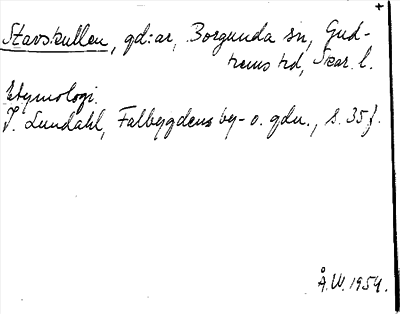 +
Stavskullen, gd:ar, Borgunda sn, Gud-
hems hd, Skar. l.
Etymologi.
I. Lundahl, Falbygdens by- o. gdn., s. 35 f.
Å.W. 1954.